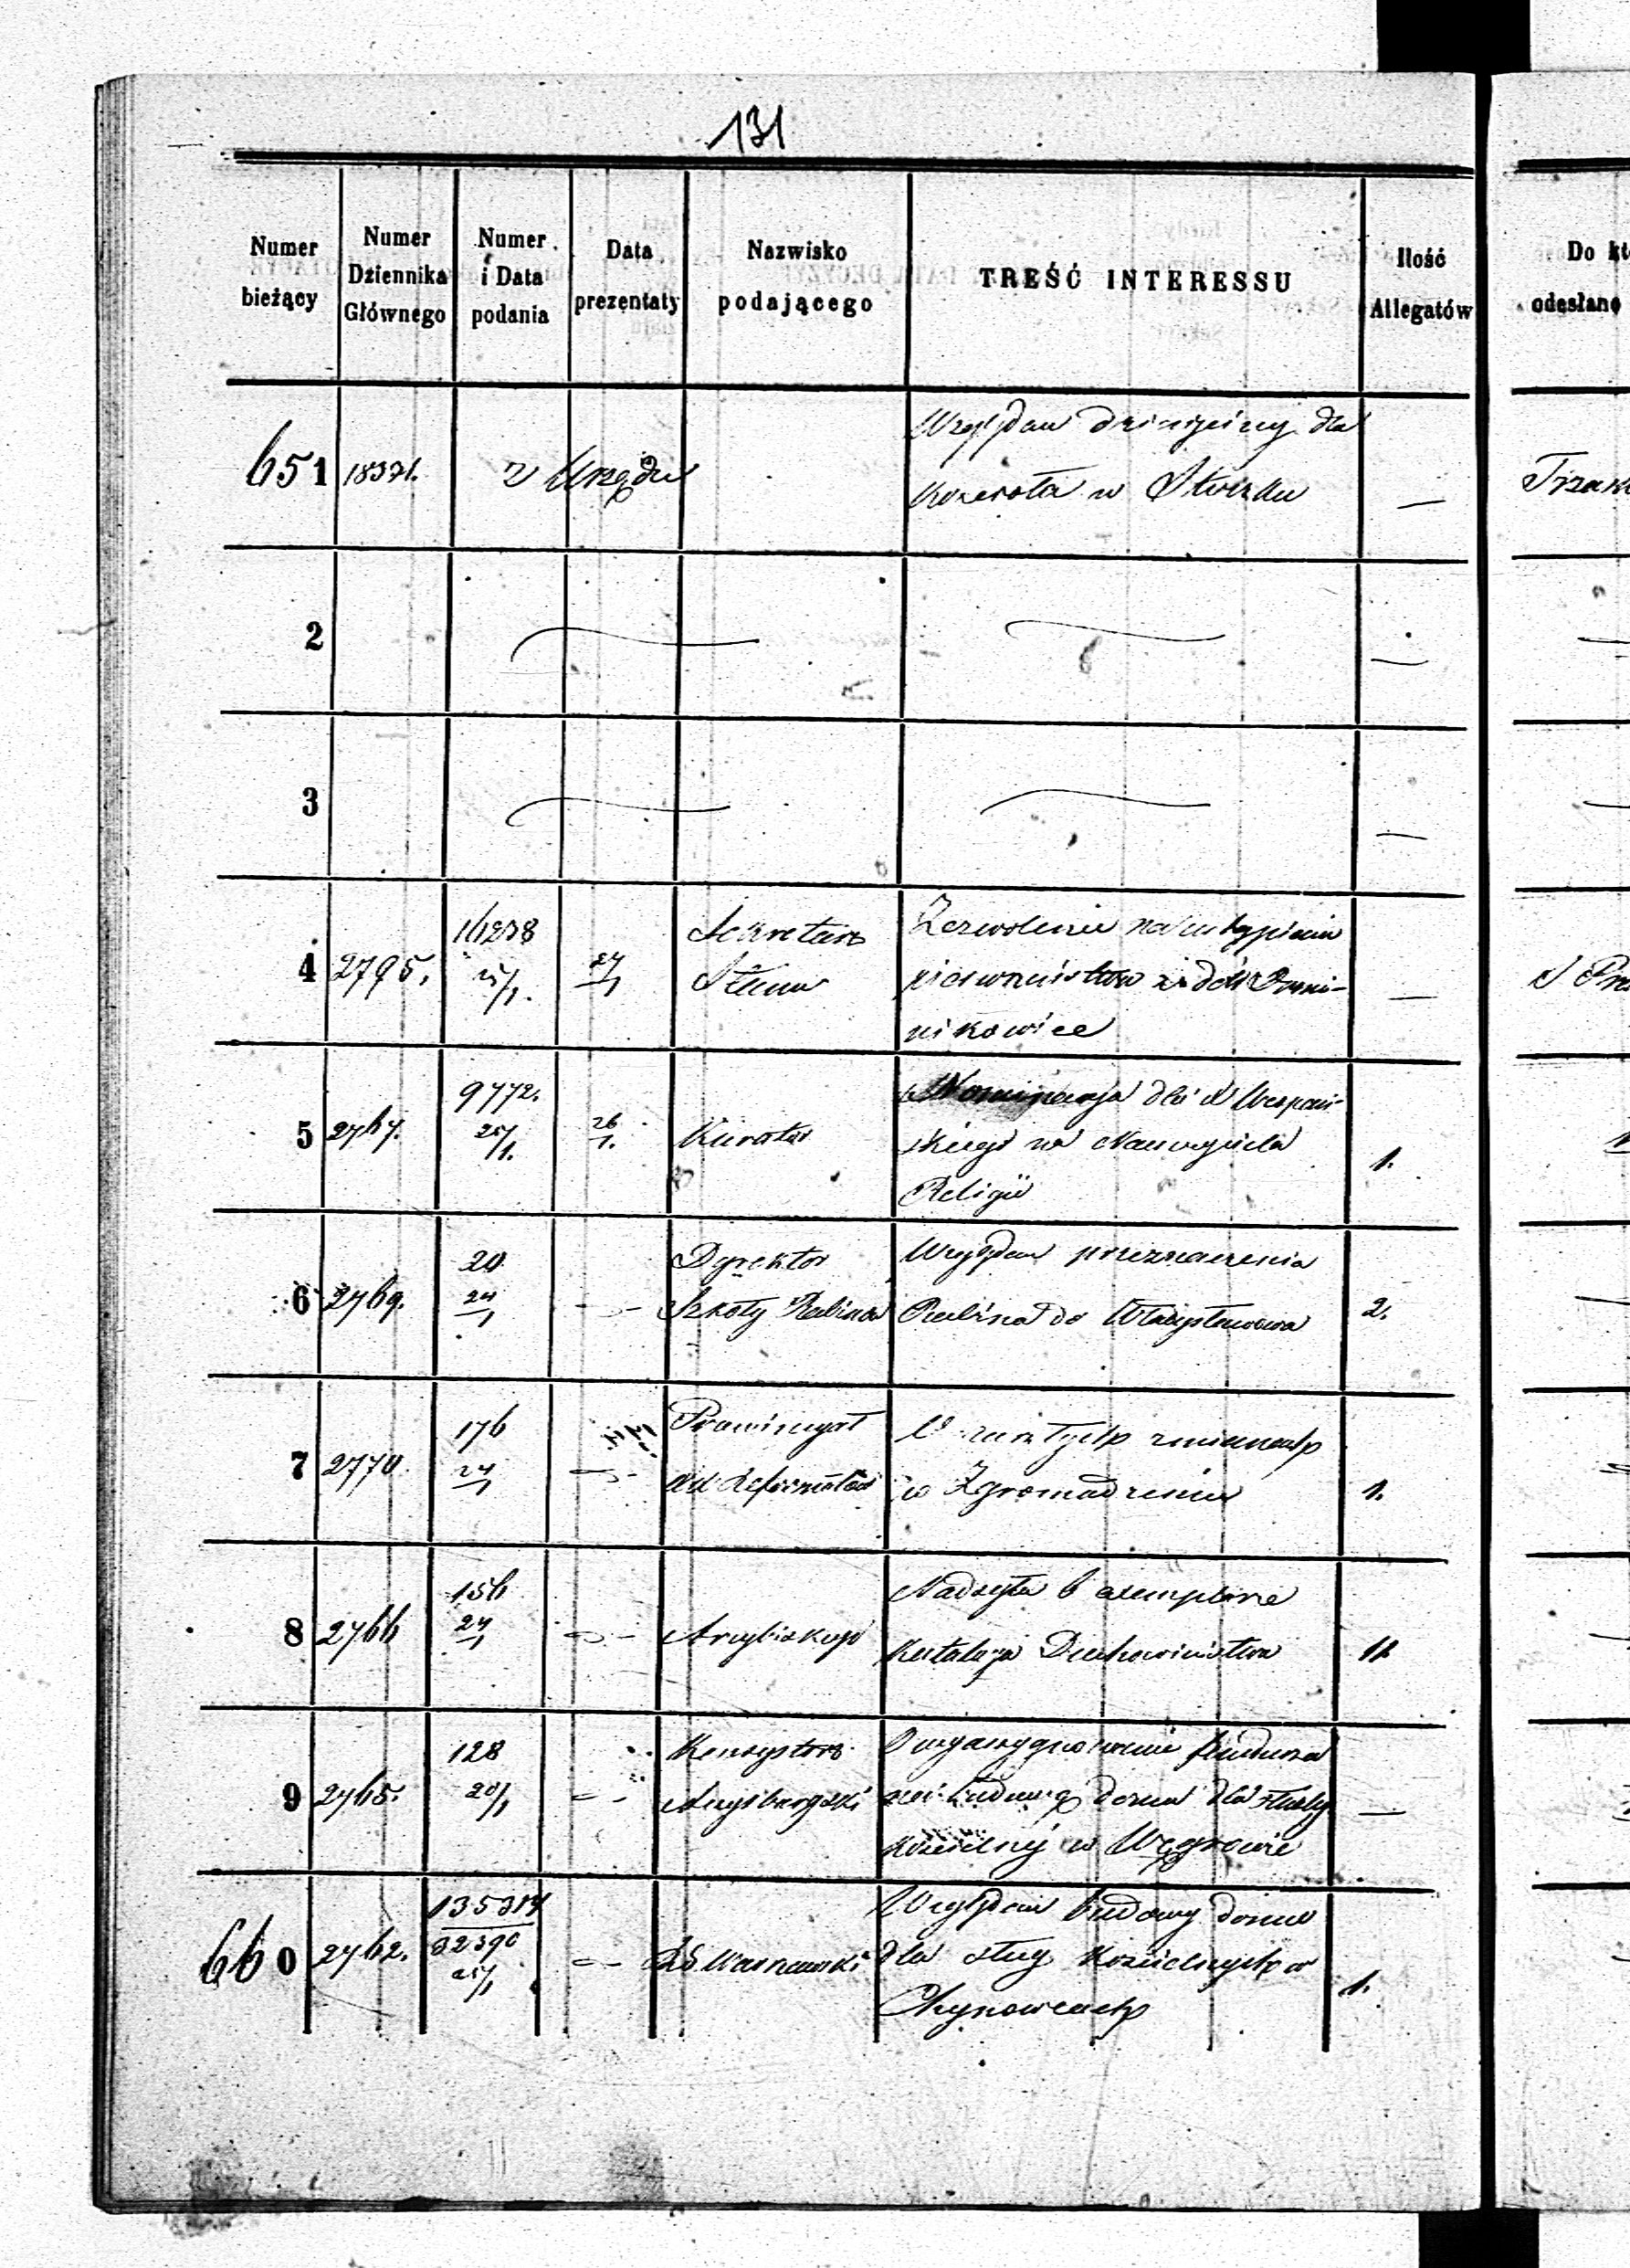 131
Numer bieżący
Numer Dziennika Głównego
Numer i Data podania
Data prezentaty
Nazwisko podającego
TREŚĆ INTERESSU
Ilość Allegatów
Do
odesłano
651 18371. z Urzędu
Względem dla
Kościoła w Stoczku —
2
3
4 2795. 16238 25/1. 27/1 Sekretarz
Stanu
Zezwolenie na ustąpienie
pierwszeństwa z dóbr Domi-
nikowice —
5 2767. 9772. 25/1. 26/1. Kurator
Nominacja dla X
skiego na Nauczyciela
Religii 1.
6 2769. 20 24/1 Dyrektor
Szkoły Rabinów
Względem przeznaczenia
Rabina do Władysławowa 2.
7 2770. 176 24/1 Prowincyał
XX Reformatów
O zaszłych zmianach
w Zgromadzeniu 1.
8 2766 156 24/1 Arcybiskup
Nadsyła 6 exemplarze
Katalogu Duchowieństwa
9 2765. 128 20/1 Konsystorz
Augsburgski
O wyasygnowanie funduszu
na budowę domu dla służby
kościelnej w Węgrowie —
660 2762. 135314 32390 25/1 Warszawski
Względem budowy domu
dla sług Kościelnych w
Chynowcach 1.